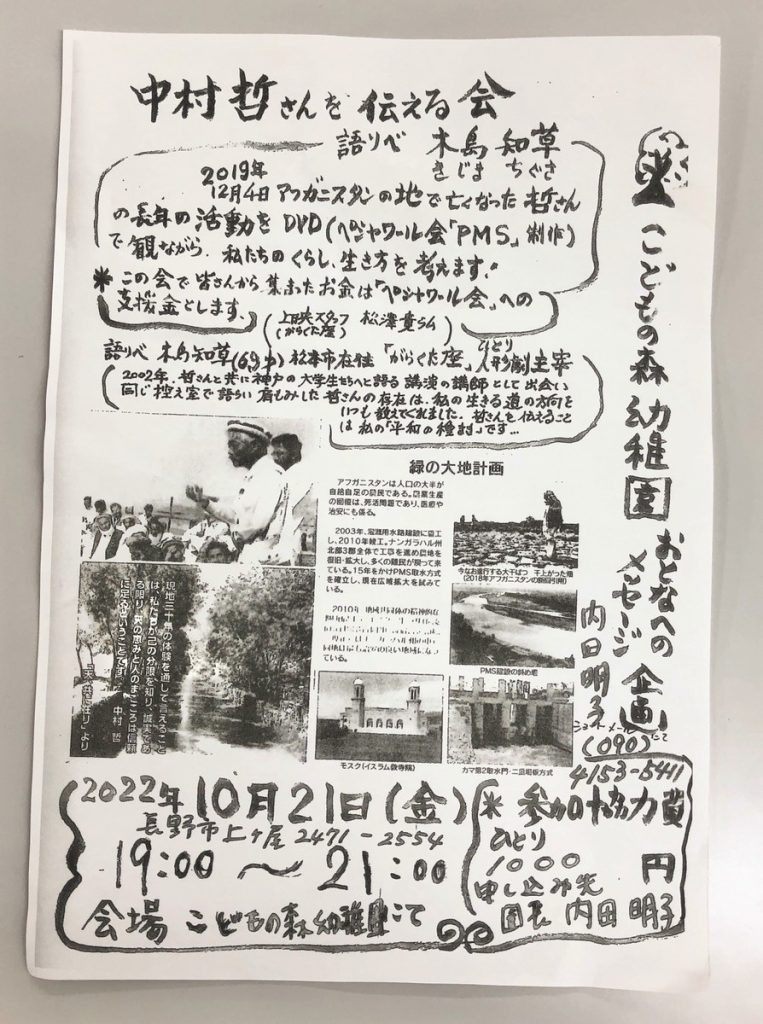 中村哲さんを伝える会
語りべ 木島 知草
きじま ちぐさ
2019年
12月4日 アフガニスタンの地で亡くなった哲さん
の長年の活動をDVD(ペシャワール会「PMS」制作)
で観ながら、私たちのくらし、生き方を考えます!
*この会で皆さんから集まったお金は「ペシャワール会」への
支援金とします。
上映スタッフ
(がらくた座)
松澤貴ラム
語りべ 木島知草(69才)松本市在住 「がらくた座」ひとり人形劇主宰
2002年、哲さんと共に神戸の大学生たちへと語る講演の講師として出会い
同じ控え室で語らい肩もみした哲さんの存在は、私の生きる道の方向を
いつも教えてくれました。哲さんを伝えること
は私の「平和の種まき」です…
こどもの森幼稚園
おとなへの
メッセージ企画
内田明子
ショートメールにて
(090)
4153-5441
緑の大地計画
アフガニスタンは人口の大半が
自給自足の農民である。農業生産
の回復は、死活問題であり、医療や
治安にも係る。
2003年、灌漑用水路建設に着工
し、2010年竣工。ナンガラハル州
北部3郡全体で工事を進め農地を
復旧・拡大し、多くの難民が戻って来
ている。15年をかけPMS取水方式
を確立し、現在広域拡大を試みて
いる。
2010年 地域共同体の精神的な
ている。
今なお進行する大干ばつ 干上がった畑
(2018年アフガニスタンの新聞引用)
PMS建設の斜め堰
モスク(イスラム教寺院)
カマ第2取水門・二重堰板方式
現地三十年の体験を通して言えること
は、私たちが己の分限を知り、誠実であ
る限り、天の恵みと人のまごころは信頼
に足るということです。 中村 哲
「天、共に在り」より
2022年10月21日(金)
長野市上ヶ屋2471-2554
19:00～21:00
会場 こどもの森幼稚園にて
*参加協力費
ひとり
1000円
申し込み先
園長 内田明子